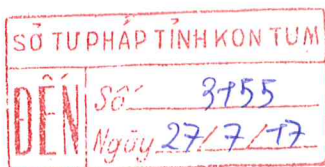 SỞ TƯ PHÁP TỈNH KON TUM
ĐẾN
Số 3155
Ngày 27/7/17